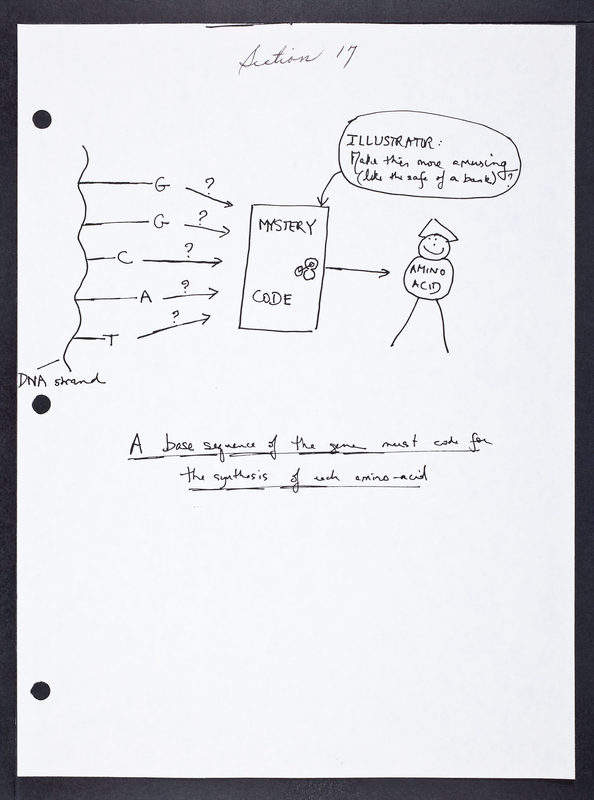 Section 17
ILLUSTRATOR:
Make this more amusing
(like the safe of a bank)?
G ?
G ?
C ?
A ?
T ?
MYSTERY
CODE
AMINO
ACID
DNA strand
A base sequence of the gene must code for
the synthesis of each amino-acid